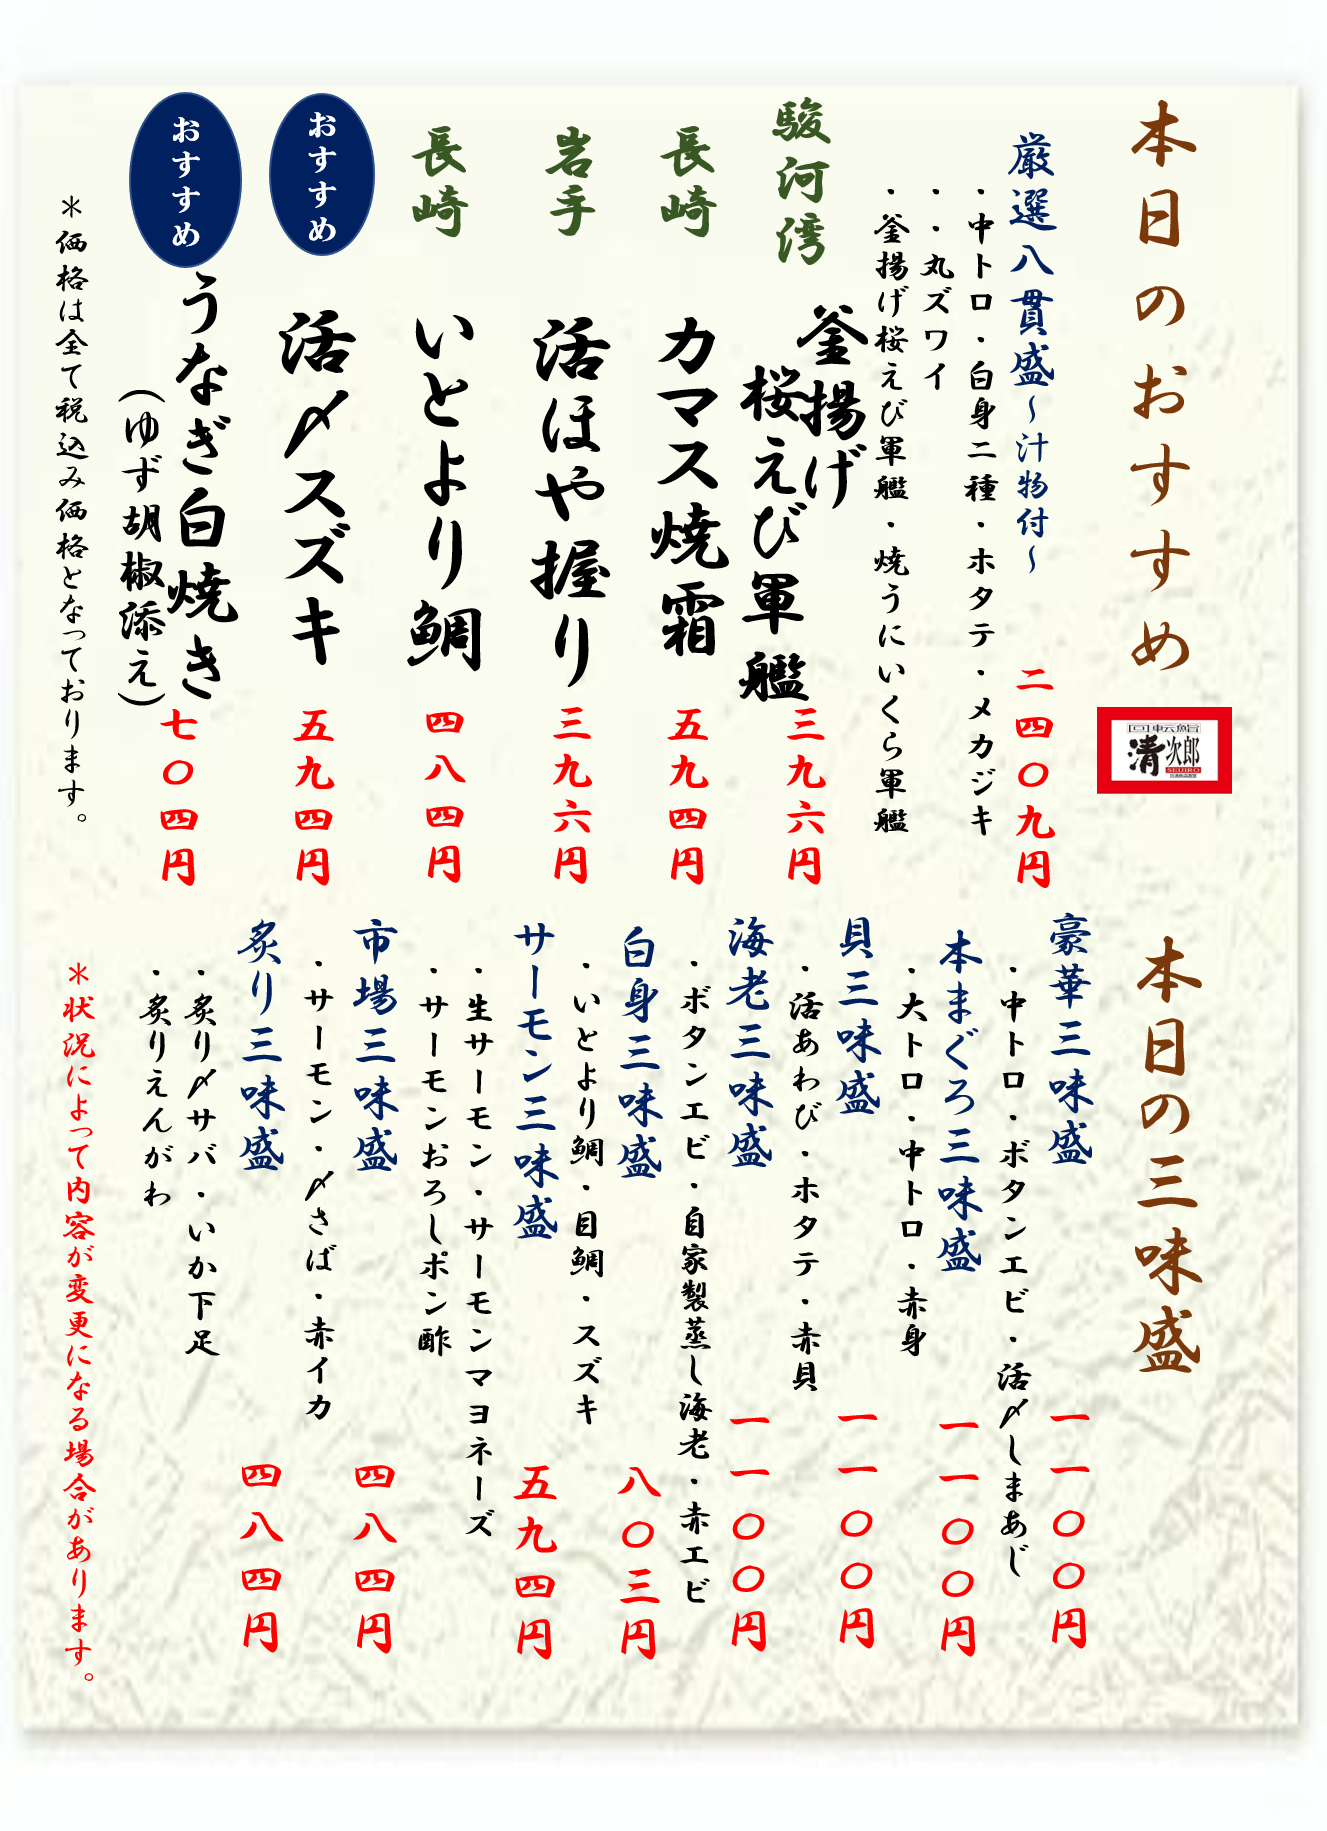 本日のおすすめ
回転鮨
清次郎
SEIJIRO
厳選八貫盛～汁物付～
二四〇九円
・中トロ・白身二種・ホタテ・メカジキ
・・丸ズワイ
・釜揚げ桜えび軍艦・焼うにいくら軍艦
駿河湾
釜揚げ
桜えび軍艦
三九六円
長崎
カマス焼霜
五九四円
岩手
活ほや握り
三九六円
長崎
いとより鯛
四八四円
おすすめ
活〆スズキ
五九四円
おすすめ
うなぎ白焼き
(ゆず胡椒添え)
七〇四円
＊価格は全て税込み価格となっております。
本日の三味盛
豪華三味盛
一一〇〇円
・中トロ・ボタンエビ・活〆しまあじ
本まぐろ三味盛
一一〇〇円
・大トロ・中トロ・赤身
貝三味盛
一一〇〇円
・活あわび・ホタテ・赤貝
海老三味盛
一一〇〇円
・ボタンエビ・自家製蒸し海老・赤エビ
白身三味盛
八〇三円
・いとより鯛・目鯛・スズキ
サーモン三味盛
五九四円
・生サーモン・サーモンマヨネーズ
・サーモンおろしポン酢
市場三味盛
四八四円
・サーモン・〆さば・赤イカ
炙り三味盛
四八四円
・炙り〆サバ・いか下足
・炙りえんがわ
＊状況によって内容が変更になる場合があります。